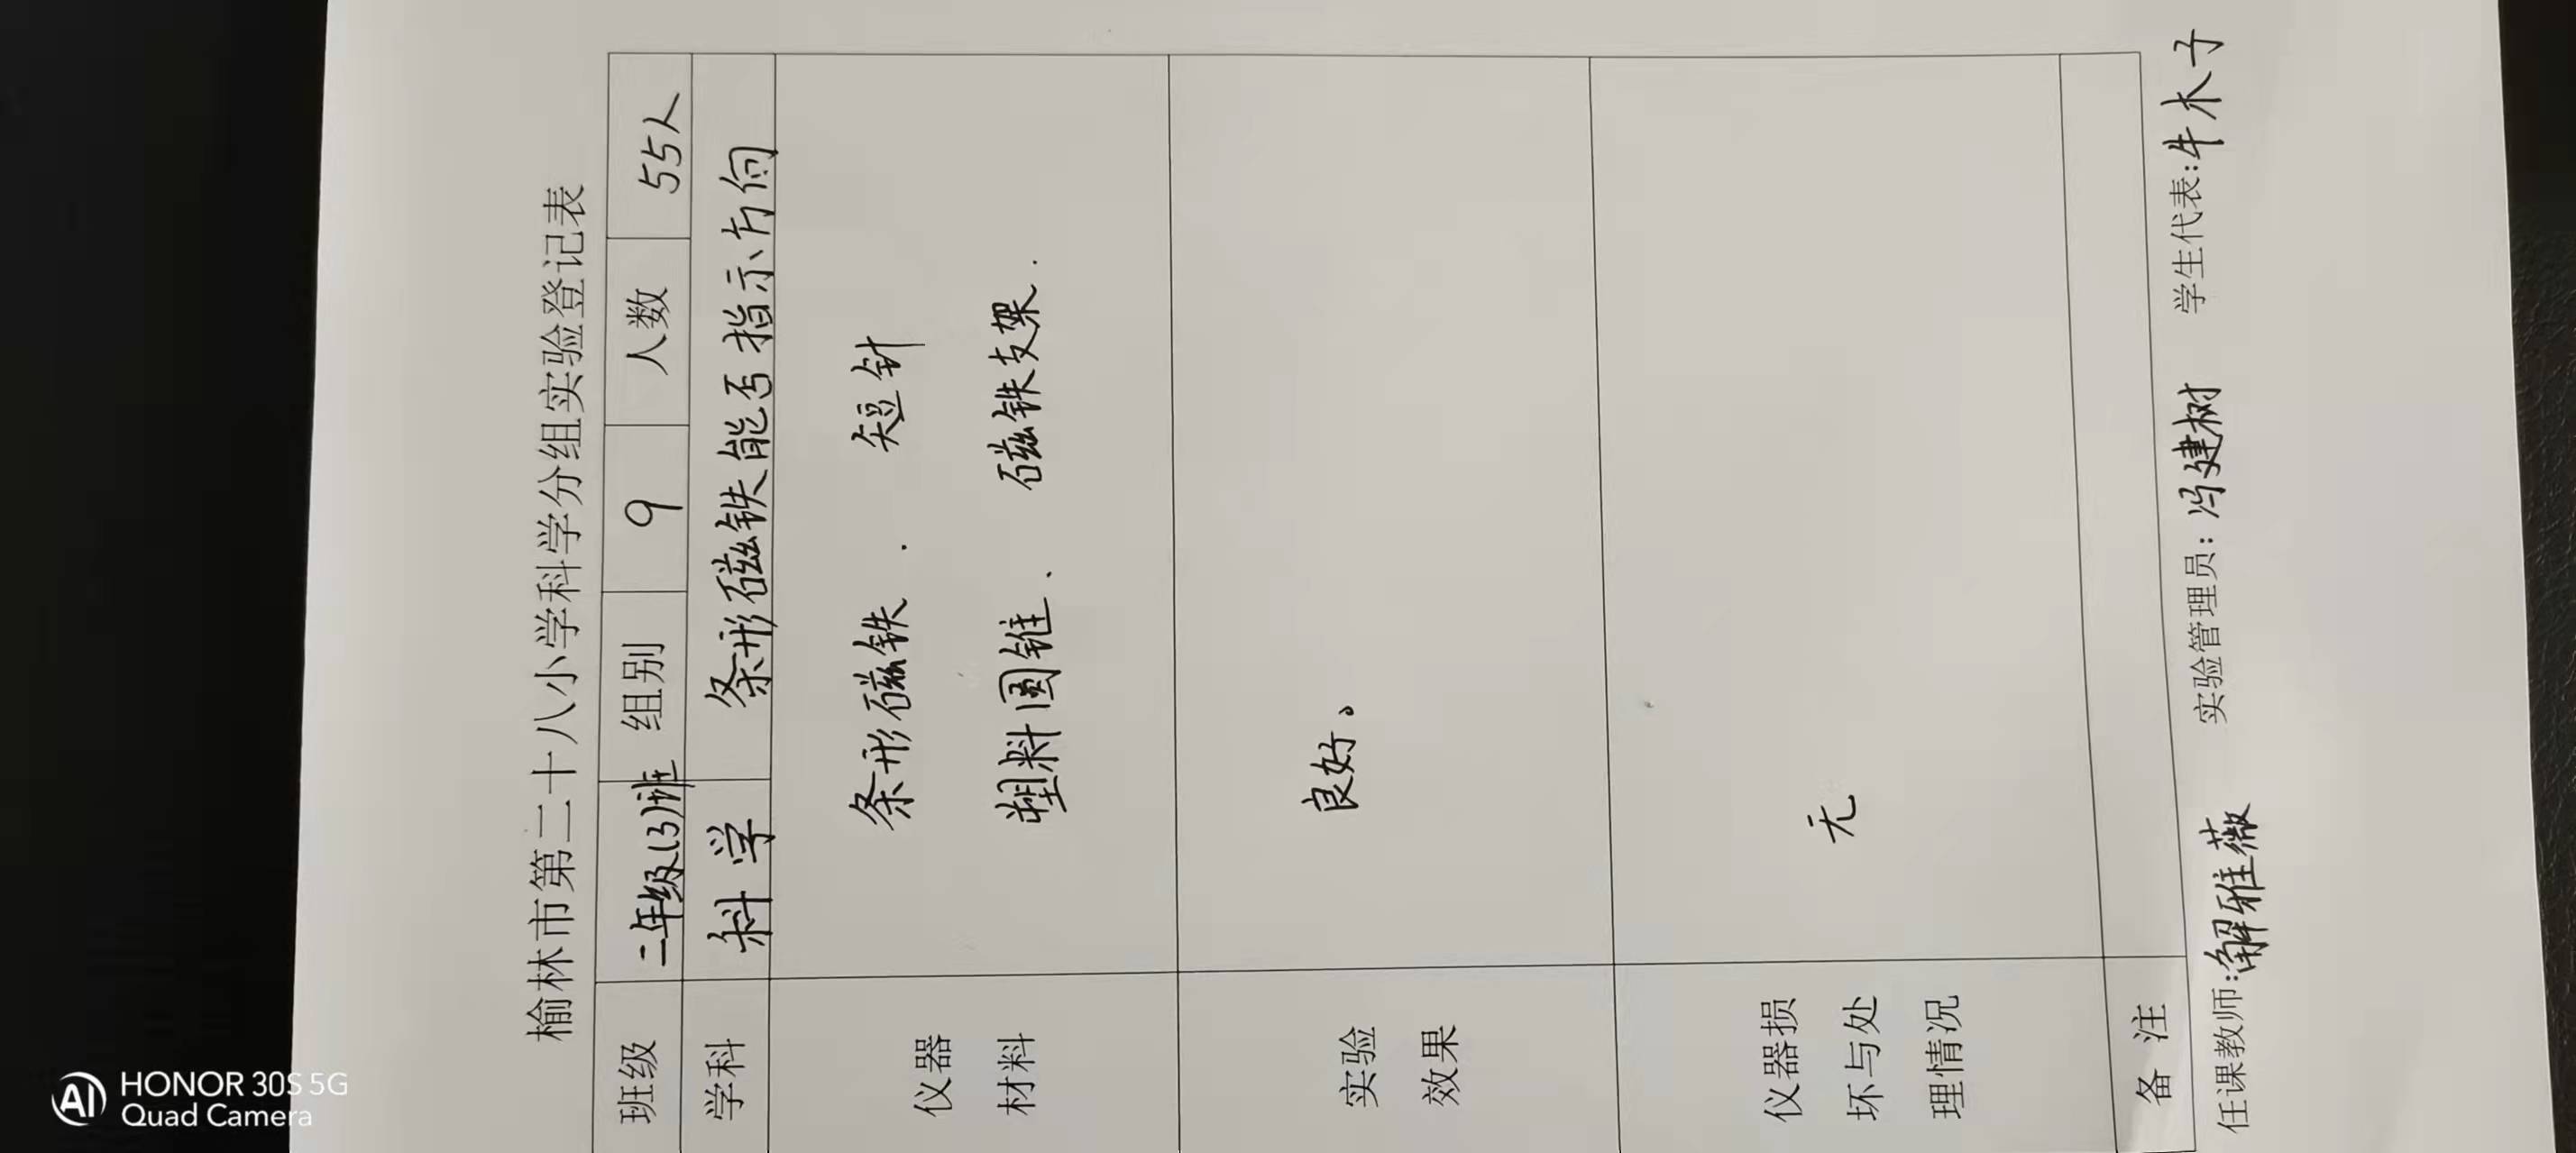 榆林市第二十八小学科学分组实验登记表
班级 二年级(3)班 组别 9 人数 55人
学科 科学 条形磁铁能否指示方向
仪器
材料
条形磁铁. 短针
塑料圆锥. 磁铁支架.
实验
效果
良好。
仪器损
坏与处
理情况
无
备 注
任课教师:解雅薇 实验管理员:冯建树 学生代表:牛木子
HONOR 30S 5G
Quad Camera
AI